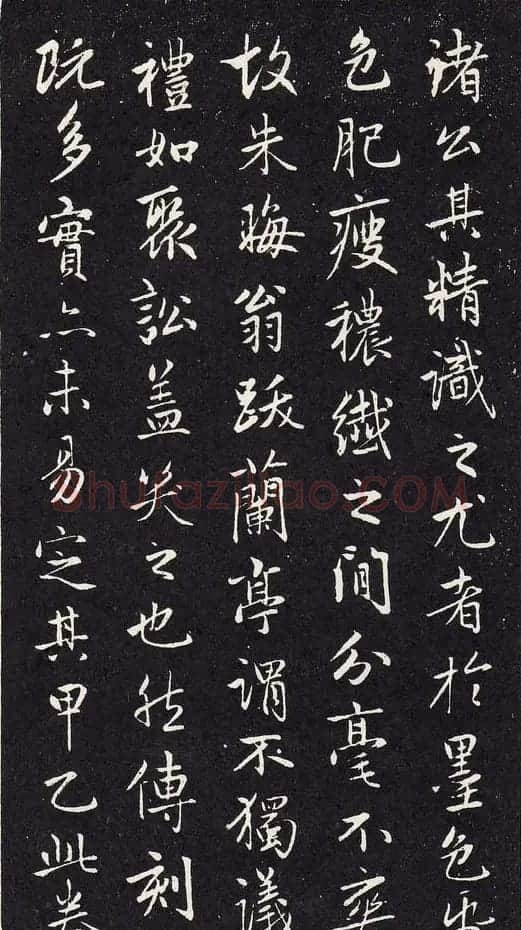 諸公其精識之尤者於墨色帋
色肥瘦穠纖之間分毫不爽
故朱晦翁跋蘭亭謂不獨議
禮如聚訟盖笑之也然傳刻
既多實亦未易定其甲乙此卷
Shufaziliao.COM